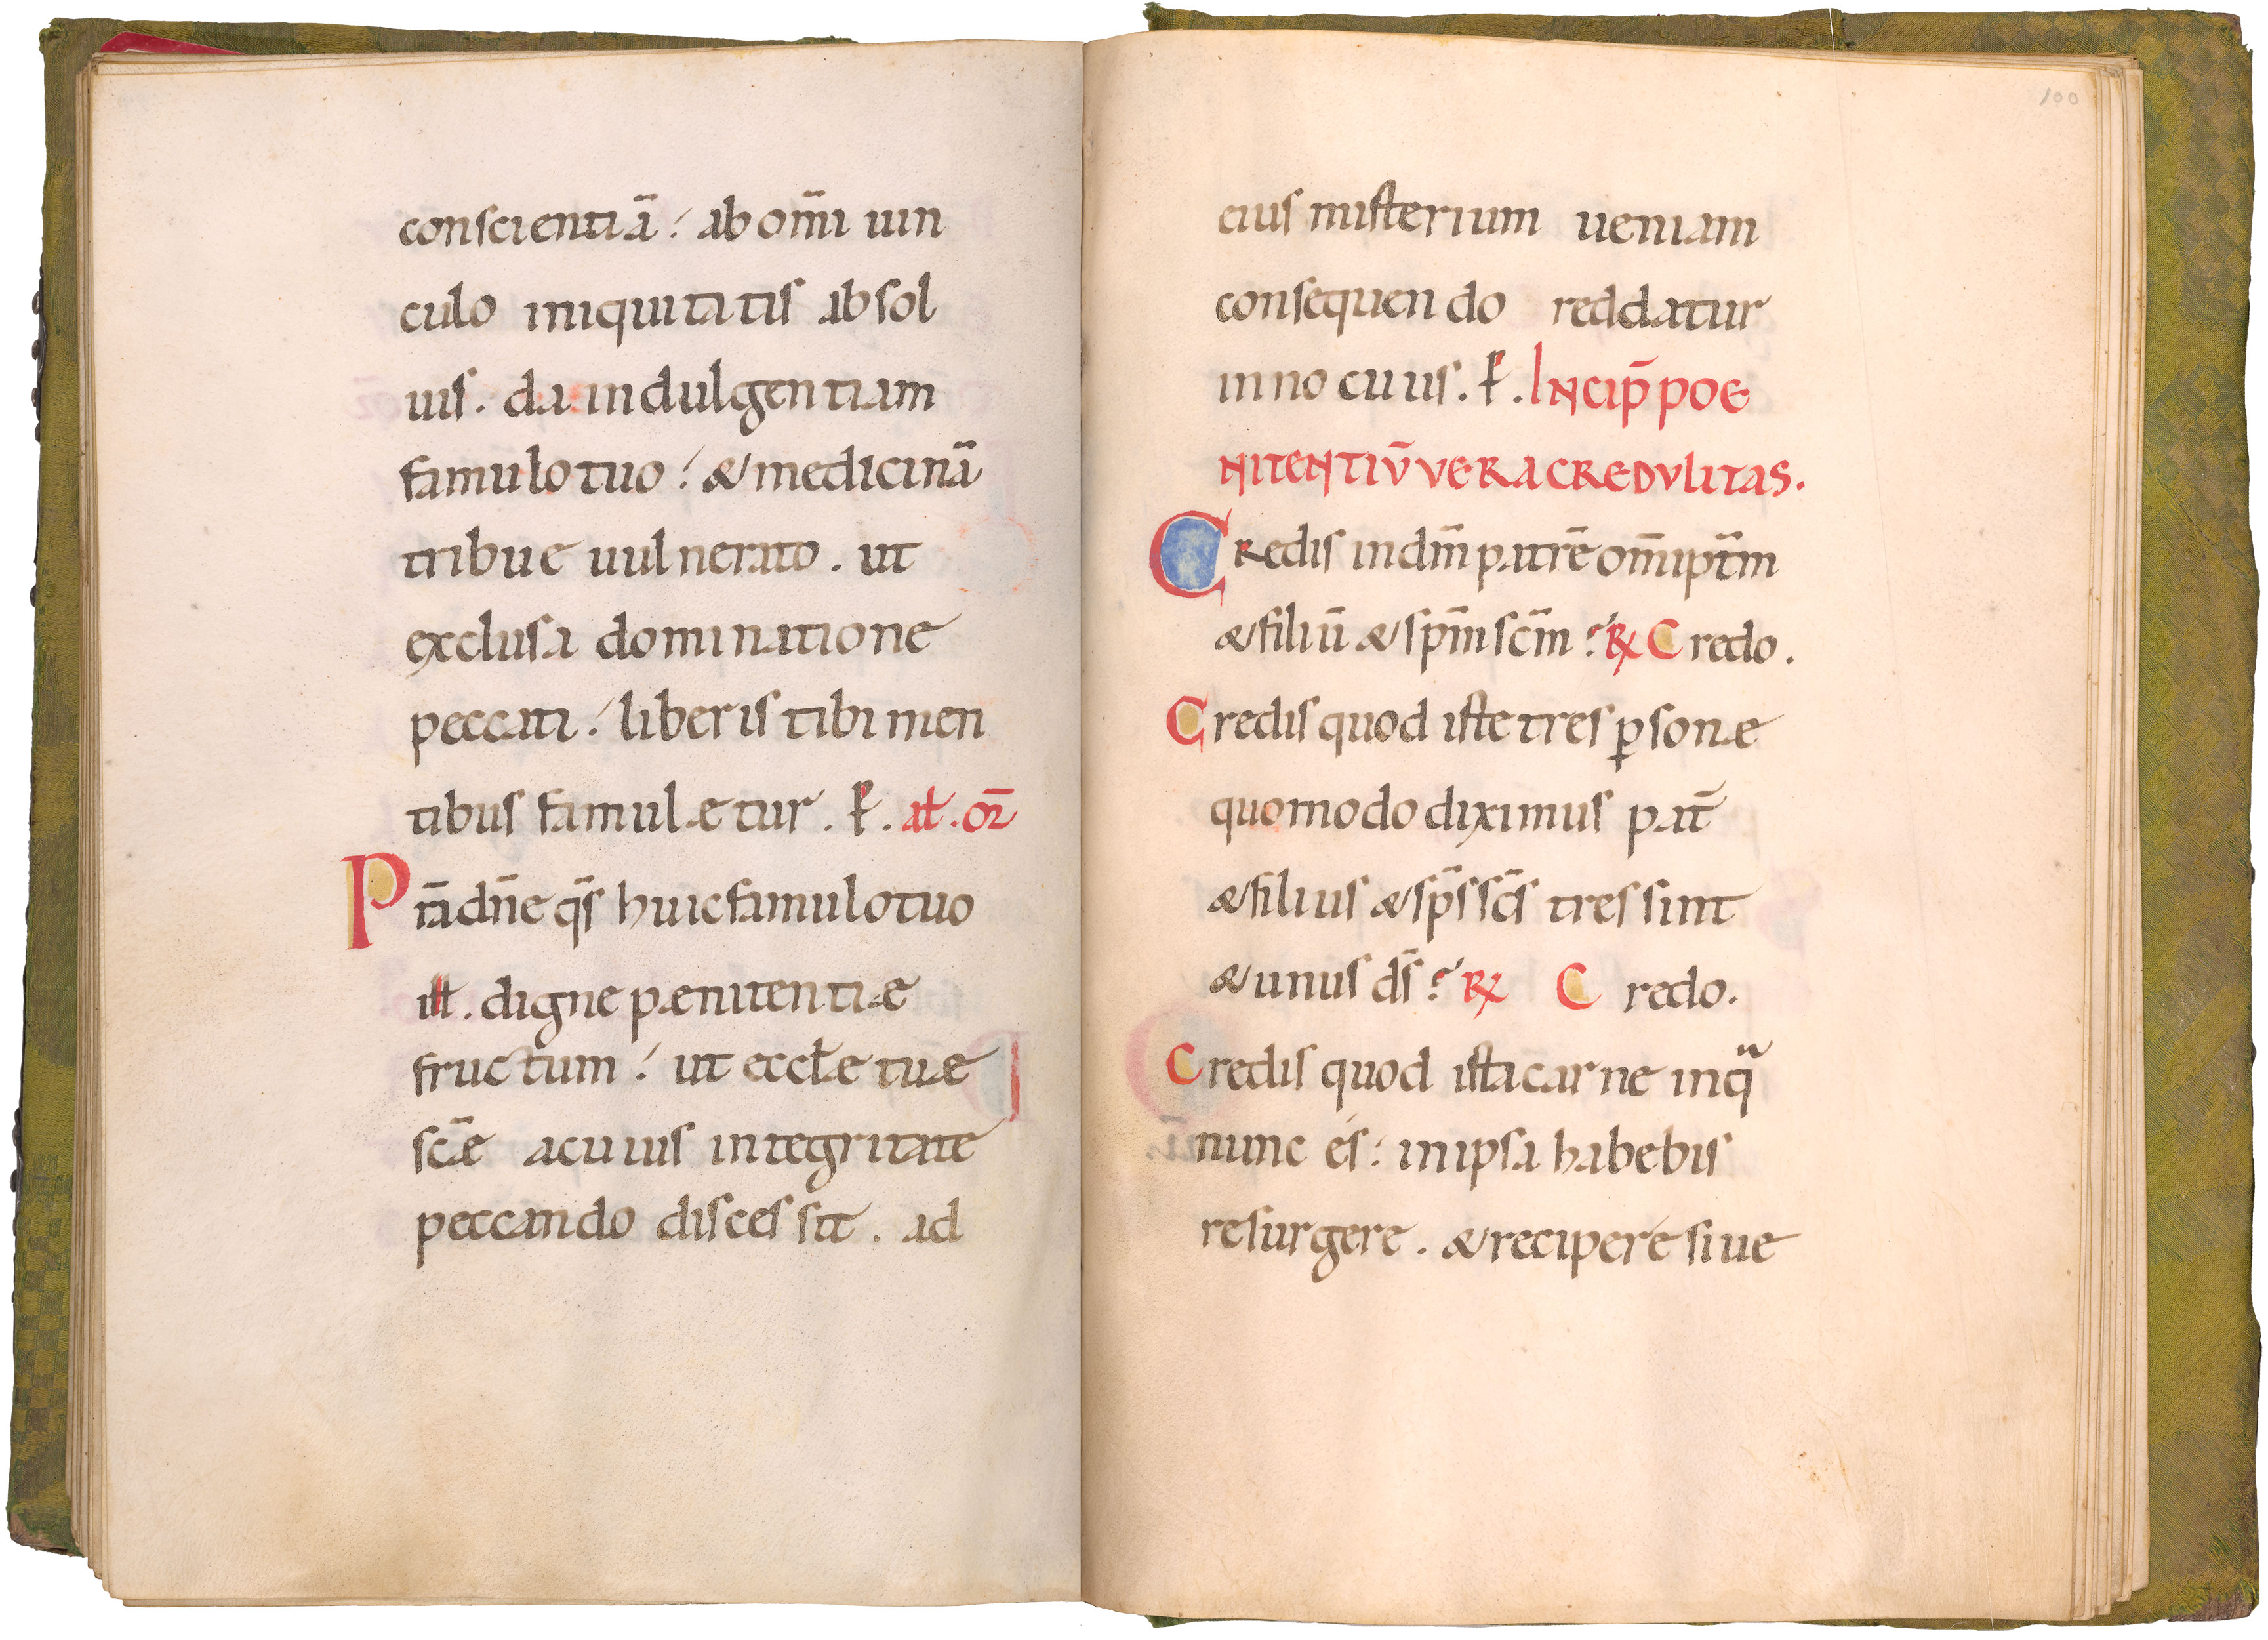 conscientiā ab om̄i uin
culo iniquitatis absol
uis. da indulgentiam
famulo tuo & medicinā
tribue uulnerato. ut
exclusa dominatione
peccati liberis tibi men
tibus famuletur. 
P ra dn̄e qs̄ huic famulo tuo
ill. digne penitentie
fructum ut eccle tue
scē a cuius integritate
peccando discessit. ad
100
eius misterium ueniam
consequendo reddatur
innocuus. Incip̄ poe
nitentiū vera credvlitas.
Credis in dm̄ patrē om̄ipt̄m
& filiū & sp̄m scm̄? ℟ Credo.
Credis quod iste tres ꝑsone
quomodo diximus pat̄
& filius & sp̄s scs̄ tres sint
& unus ds̄? ℟ Credo.
Credis quod ista carne in qª
nunc és: in ipsa habebis
resurgere. & recipere siue